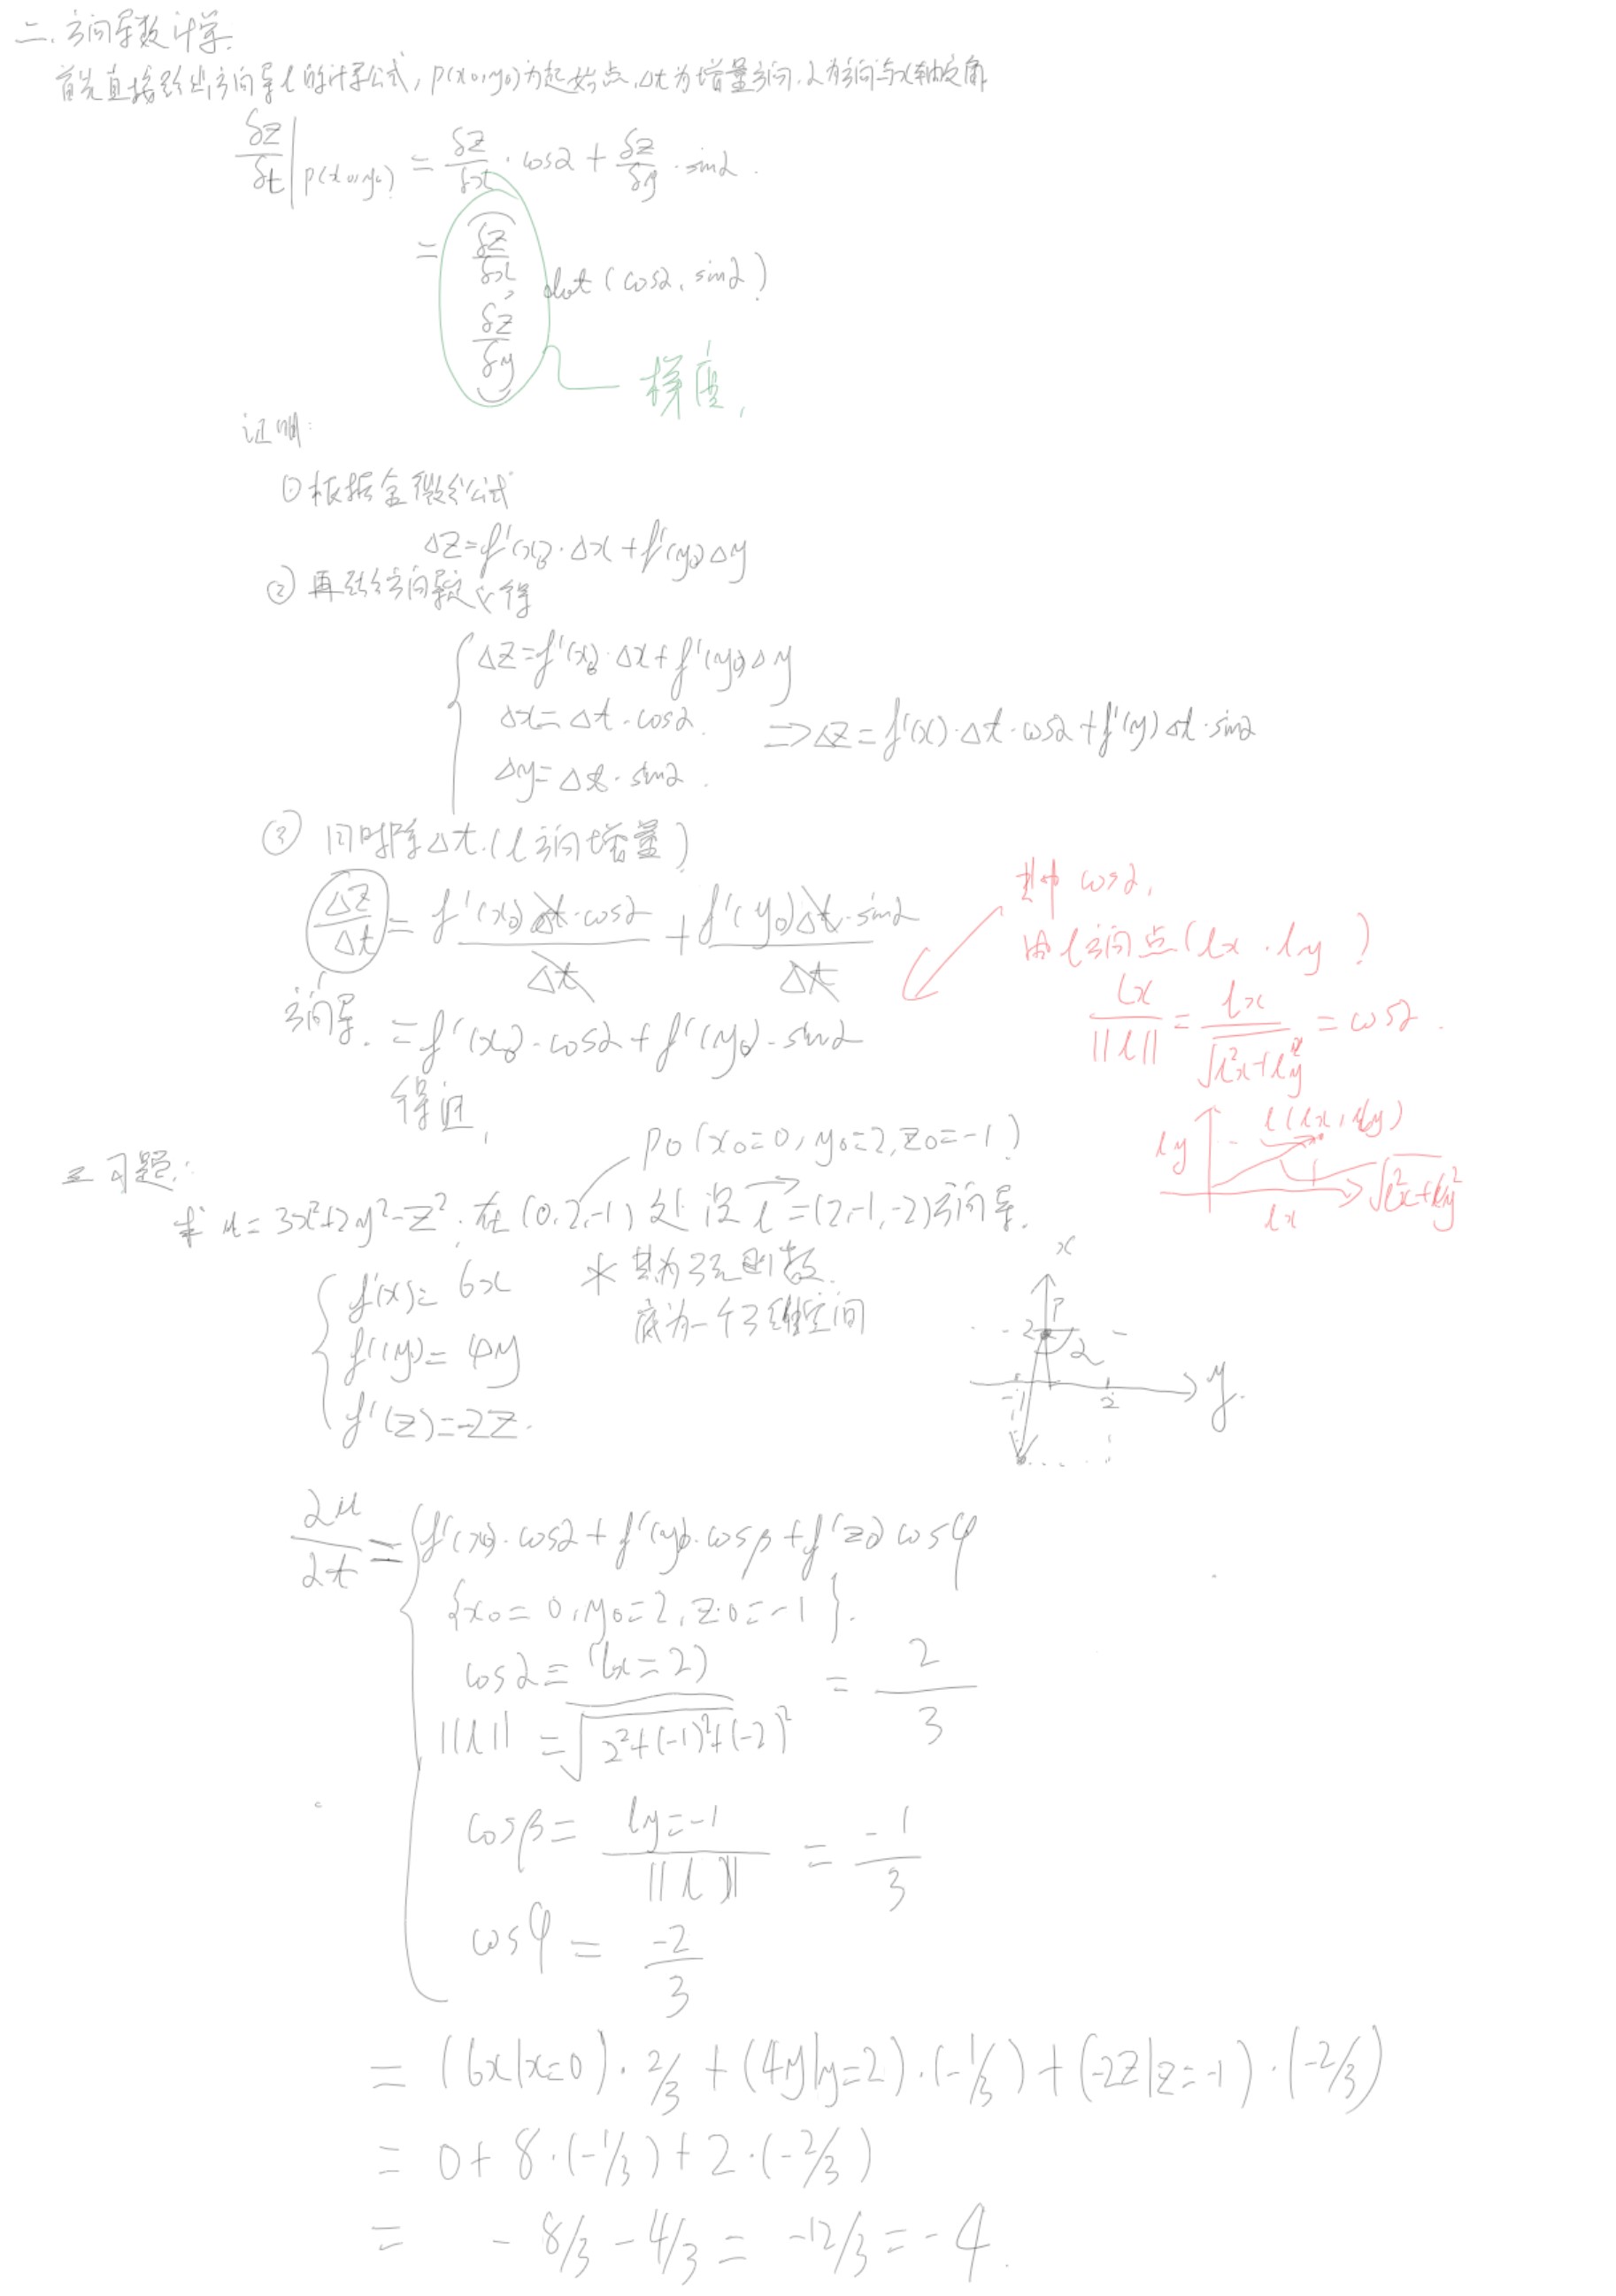 二.方向导数计算.
首先直接给出方向导l的计算公式, p(x0,y0)为起始点,Δt为增量方向.α为方向与x轴夹角
δz/δt|p(x0,y0) = δz/δx · cosα + δz/δy · sinα.
= (δz/δx, δz/δy) dot (cosα, sinα)
梯度,
证明:
① 根据全微分公式
ΔZ=f'(x0)·Δx+f'(y0)Δy
② 再结合方向导定义得
ΔZ=f'(x0)·Δx+f'(y0)Δy
Δx=Δt·cosα. => ΔZ=f'(x)·Δt·cosα+f'(y)Δt·sinα
Δy=Δt·sinα.
③ 同时除Δt.(l方向增量)
ΔZ/Δt = f'(x0)Δt·cosα/Δt + f'(y0)Δt·sinα/Δt
方向导. =f'(x0)·cosα+f'(y0)·sinα
得证,
其中cosα,
由l方向点(lx,ly)
lx/||l|| = lx/√(l²x+l²y) = cosα.
l(lx,ly)
ly
√(l²x+l²y)
lx
P0(x0=0,y0=2,z0=-1)
三习题:
求u=3x²+2y²-z².在(0,2,-1)处沿l=(2,-1,-2)方向导.
f'(x)=6x
f'(y)=4y
f'(z)=-2z.
* 其为3元函数.
底为一个3维空间
x
P
-2
α
y.
-1
2
∂u/∂t = f'(x0)·cosα+f'(y0)·cosβ+f'(z0)cosφ
{x0=0,y0=2,z0=-1}.
cosα= (lx=2) = 2/3
||l|| =√(2²+(-1)²+(-2)²)
cosβ= ly=-1/||l|| = -1/3
cosφ = -2/3
= (6x|x=0)·2/3+(4y|y=2)·(-1/3)+(-2z|z=-1)·(-2/3)
= 0+8·(-1/3)+2·(-2/3)
= -8/3-4/3= -12/3=-4.